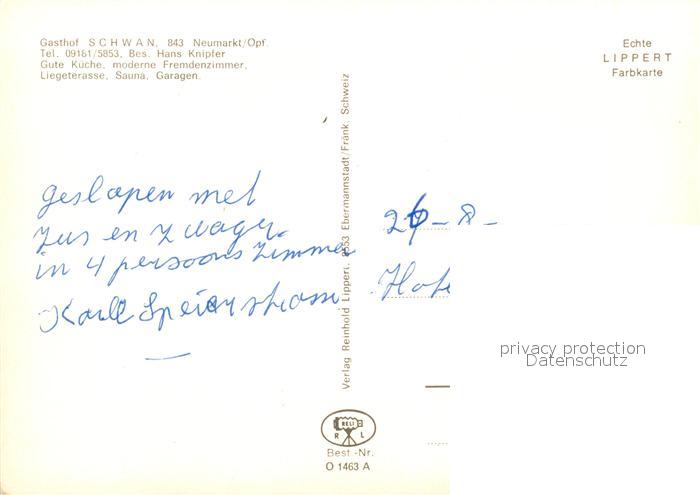 Gasthof SCHWAN, 843 Neumarkt/Opf.
Tel. 09181/5853, Bes. Hans Knipfer
Gute Küche, moderne Fremdenzimmer,
Liegeterasse, Sauna, Garagen.
Echte
LIPPERT
Farbkarte
geslapen met
zus en zwager
in 4 persoons zimmer
Verlag Reinhold Lippert, 8553 Ebermannstadt/Fränk. Schweiz
- 8 -
privacy protection
Datenschutz
RELI
R L
Best.-Nr.
O 1463 A